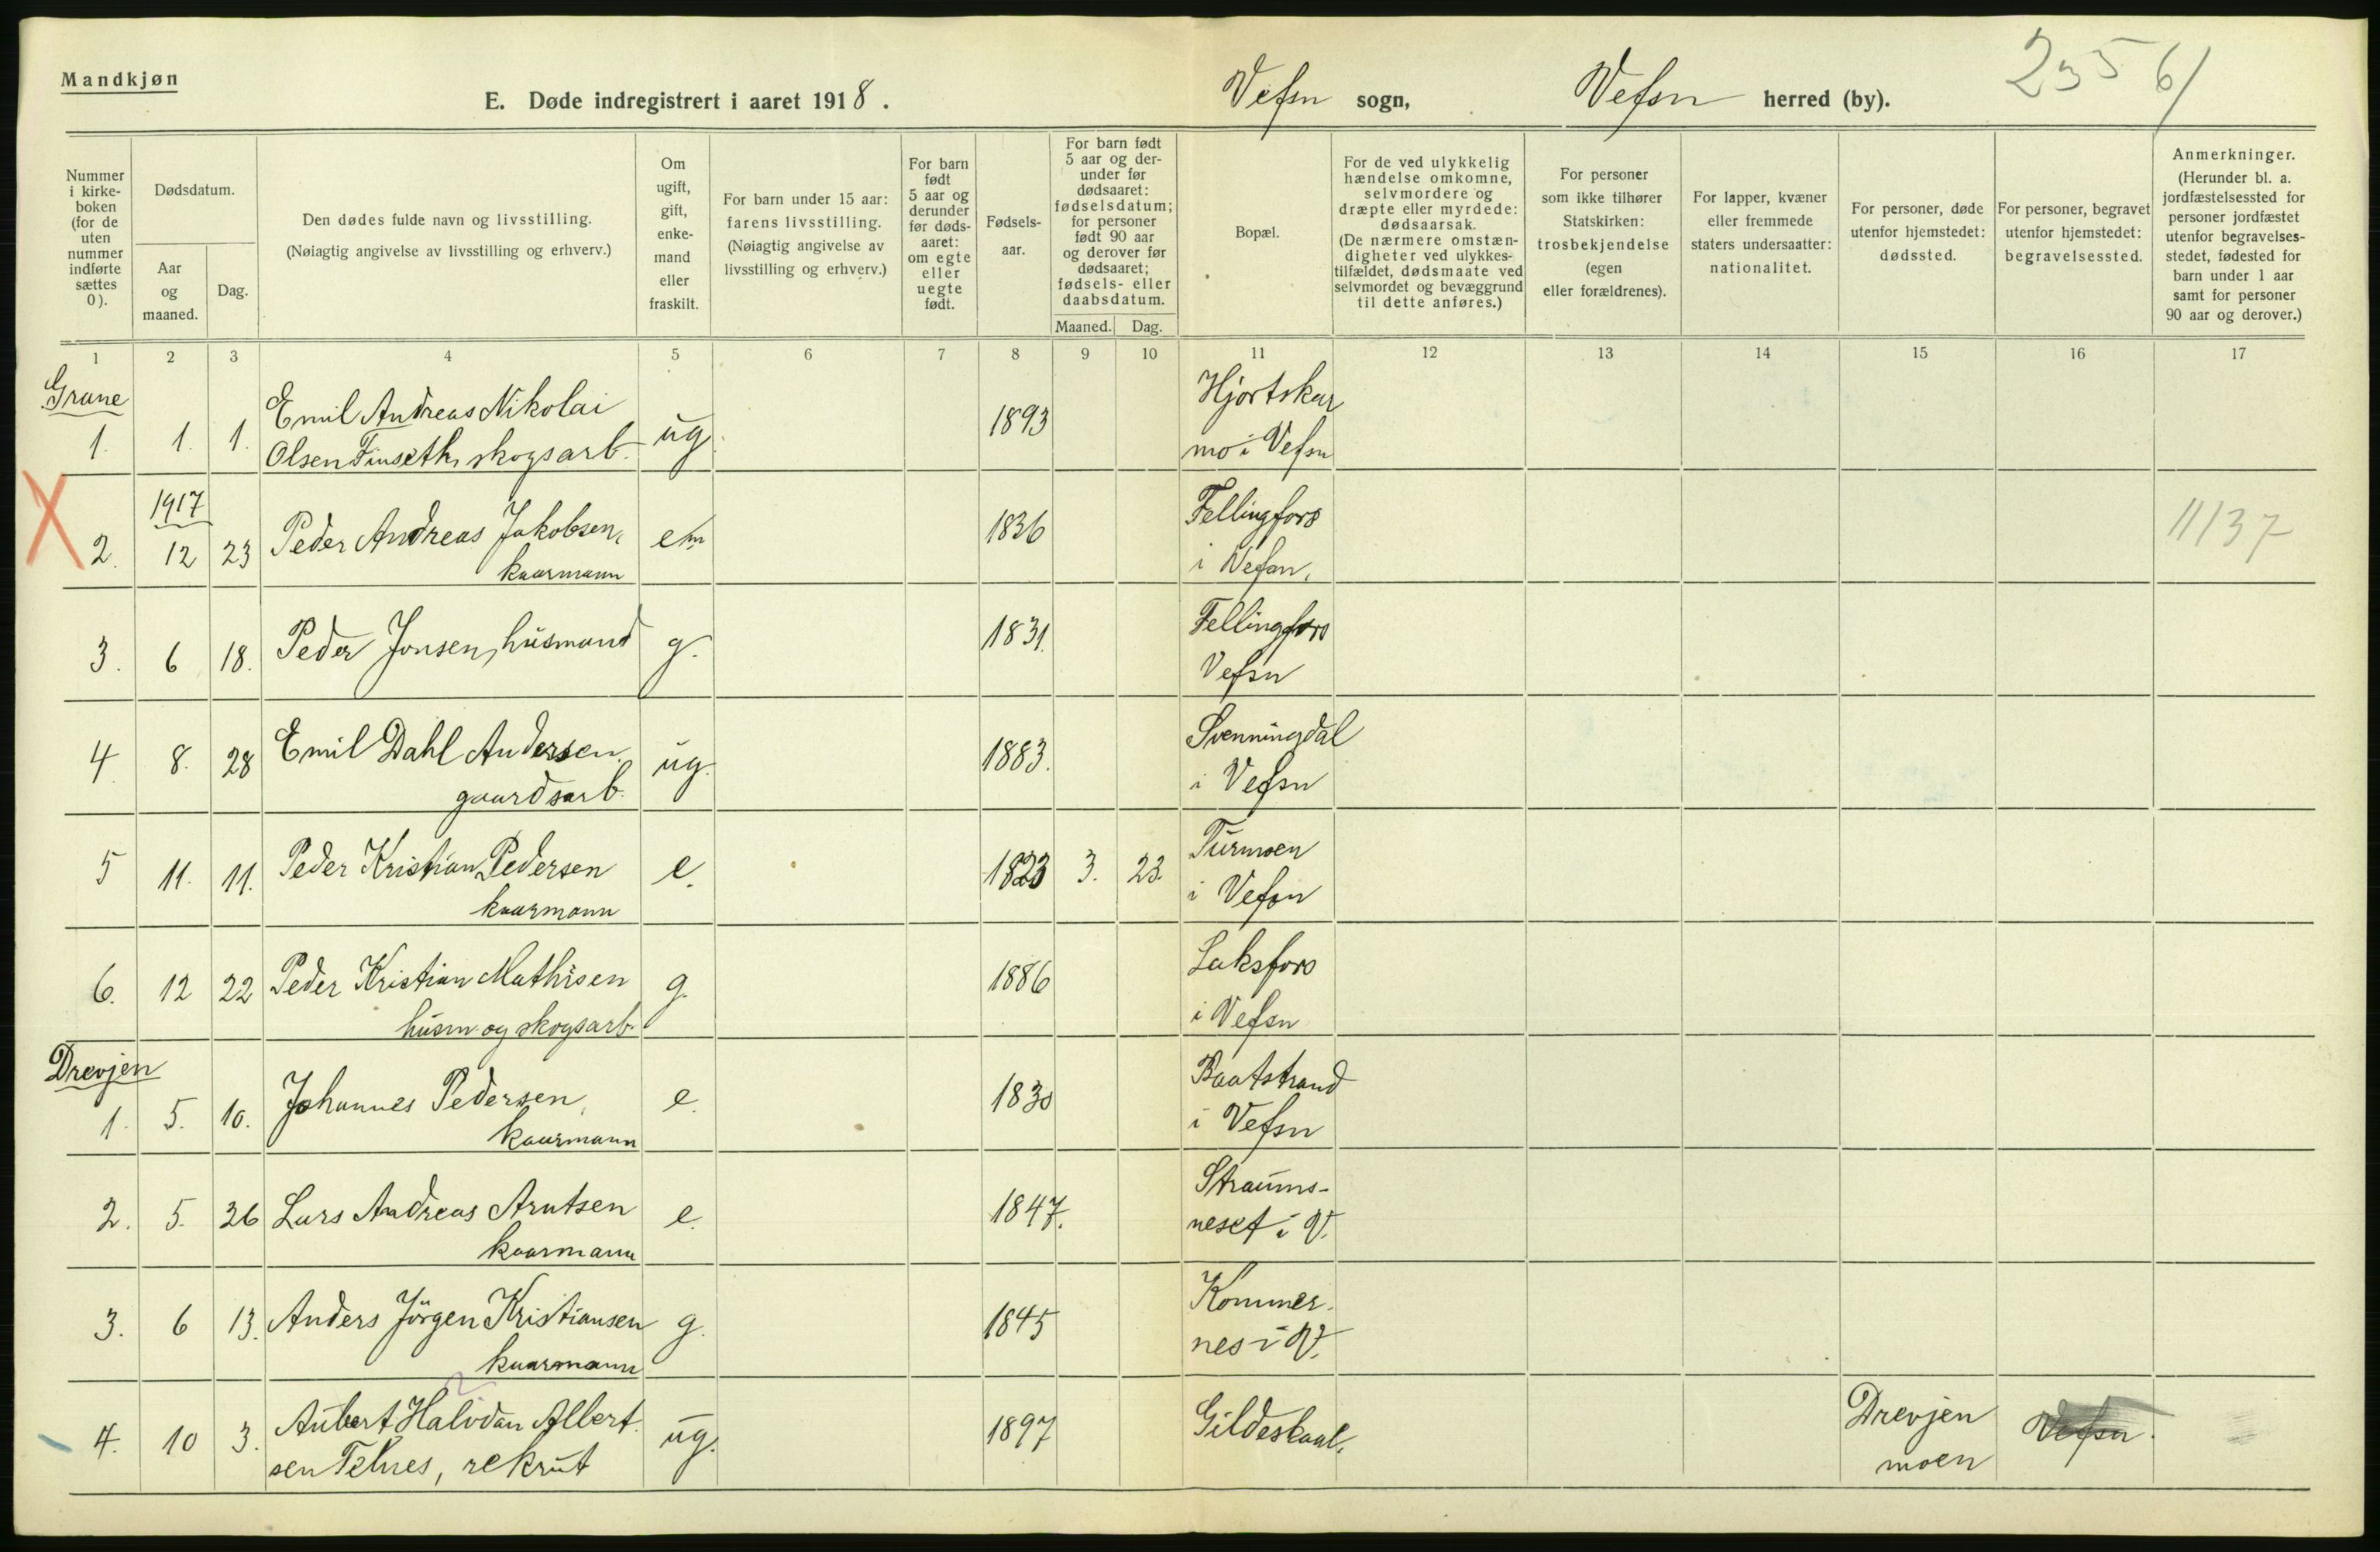 Mandkjøn
E. Døde indregistrert i aaret 1918.
Vefsn sogn, Vefsn herred (by).
2356/
Nummer i kirke-boken (for de uten nummer indførte sættes 0).
Dødsdatum.
Aar og maaned.
Dag.
Den dødes fulde navn og livsstilling.
(Nøiagtig angivelse av livsstilling og erhverv.)
Om ugift, gift, enke-mand eller fraskilt.
For barn under 15 aar: farens livsstilling.
(Nøiagtig angivelse av livsstilling og erhverv.)
For barn født 5 aar og derunder før døds-aaret: om egte eller uegte født.
Fødsels-aar.
For barn født 5 aar og der-under før dødsaaret: fødselsdatum; for personer født 90 aar og derover før dødsaaret; fødsels- eller daabsdatum.
Maaned. Dag.
Bopæl.
For de ved ulykkelig hændelse omkomne, selvmordere og dræpte eller myrdede: dødsaarsak.
(De nærmere omstæn-digheter ved ulykkes-tilfældet, dødsmaate ved selvmordet og bevæggrund til dette anføres.)
For personer som ikke tilhører Statskirken: trosbekjendelse (egen eller forældrenes).
For lapper, kvæner eller fremmede staters undersaatter: nationalitet.
For personer, døde utenfor hjemstedet: dødssted.
For personer, begravet utenfor hjemstedet: begravelsessted.
Anmerkninger.
(Herunder bl. a. jordfæstelsessted for personer jordfæstet utenfor begravelses-stedet, fødested for barn under 1 aar samt for personer 90 aar og derover.)
1 2 3 4 5 6 7 8 9 10 11 12 13 14 15 16 17
Grane
1. 1. 1. Emil Andreas Nikolai ug. 1893 Hjortskar
Olsen Finseth, skogsarb. mo i Vefsn
X 1917
2. 12 23 Peder Andreas Jakobsen, em 1836 Fellingfors 11137
kaarmann i Vefsn.
3. 6 18. Peder Jonsen, husmand g. 1831. Fellingfors
Vefsn
4 8. 28 Emil Dahl Andersen ug. 1883. Svenningdal
gaardsarb. i Vefsn
5 11. 11. Peder Kristian Pedersen e. 1823 3. 23. Turmoen
kaarmann i Vefsn
6. 12 22 Peder Kristian Mathisen g. 1886 Laksfors
husm og skogsarb. i Vefsn
Drevjen
1. 5. 10. Johannes Pedersen, e. 1830 Baatstrand
kaarmann i Vefsn
2. 5. 26 Lars Andreas Arntsen e. 1847. Straums-
kaarmann neset i V.
3. 6 13. Anders Jörgen Kristiansen g. 1845 Kommer-
kaarmann nes i V.
4. 10 3. Aubert Halvdan Albert ug. 1897 Gildeskaal. Drevjen Vefsn.
sen Telnes, rekrut moen